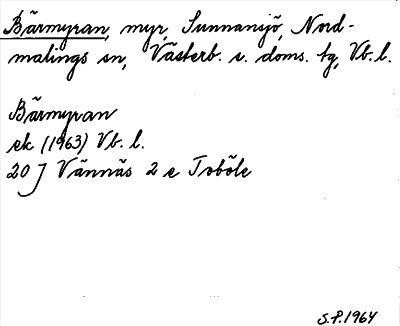 Bärmyran, myr, Sunnansjö, Nord-
malings sn, Västerb. s. doms. tg, Vb. l.
Bärmyran
ek (1963) Vb. l.
20 J Vännäs 2 e Tvböle
S.P. 1964